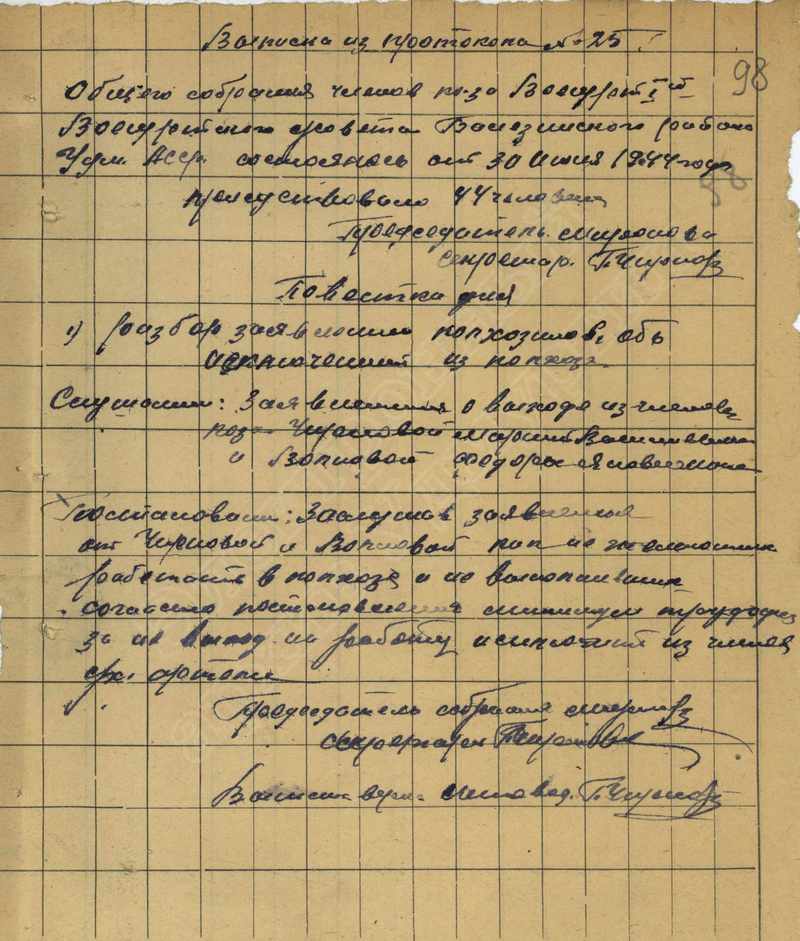 Выписка из протокола № 25
98
Общего собрания членов к-за Воегурт I ой
Воегуртского с/совета Балезинского района
Удм. АССР состоялось от 30 июня 1944 года
присутствовало 44 человека
Председатель Миронова
секретар. Т. Чирков
Повестка дня
1) разбор заявлении колхозников, объ
исключений из колхоза
Слушали: Заявления о выходе из членов
к-за Чирковой Марии Васильевна
и Волковой Федоры
Постановили: Заслушав заявления
от Чирковой и Волковой как не желающих
работать в колхозе и не выработавших
согласно постановления минимум трудодней
за не выход на работу исключит из членов
с/х. артели
Председатель собрания
секретарь
Выписка верна: счетовод. Т. Чирков